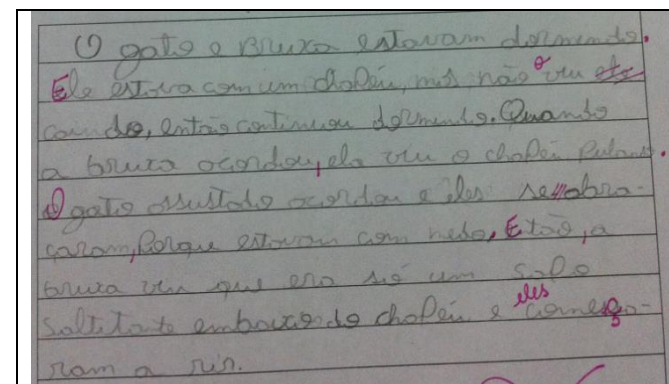 O gato e Bruxa estavam dormindo.
Ele estava com um chapéu, mas não o viu
caindo, então continuou dormindo. Quando
a bruxa acordou, ela viu o chapéu Pulando.
O gato assustado acordou e eles se abra-
çaram, Porque estavam com medo, Etão, a
bruxa viu que era só um sapo
saltitate embaixo do chapéu e eles começa-
ram a rir.